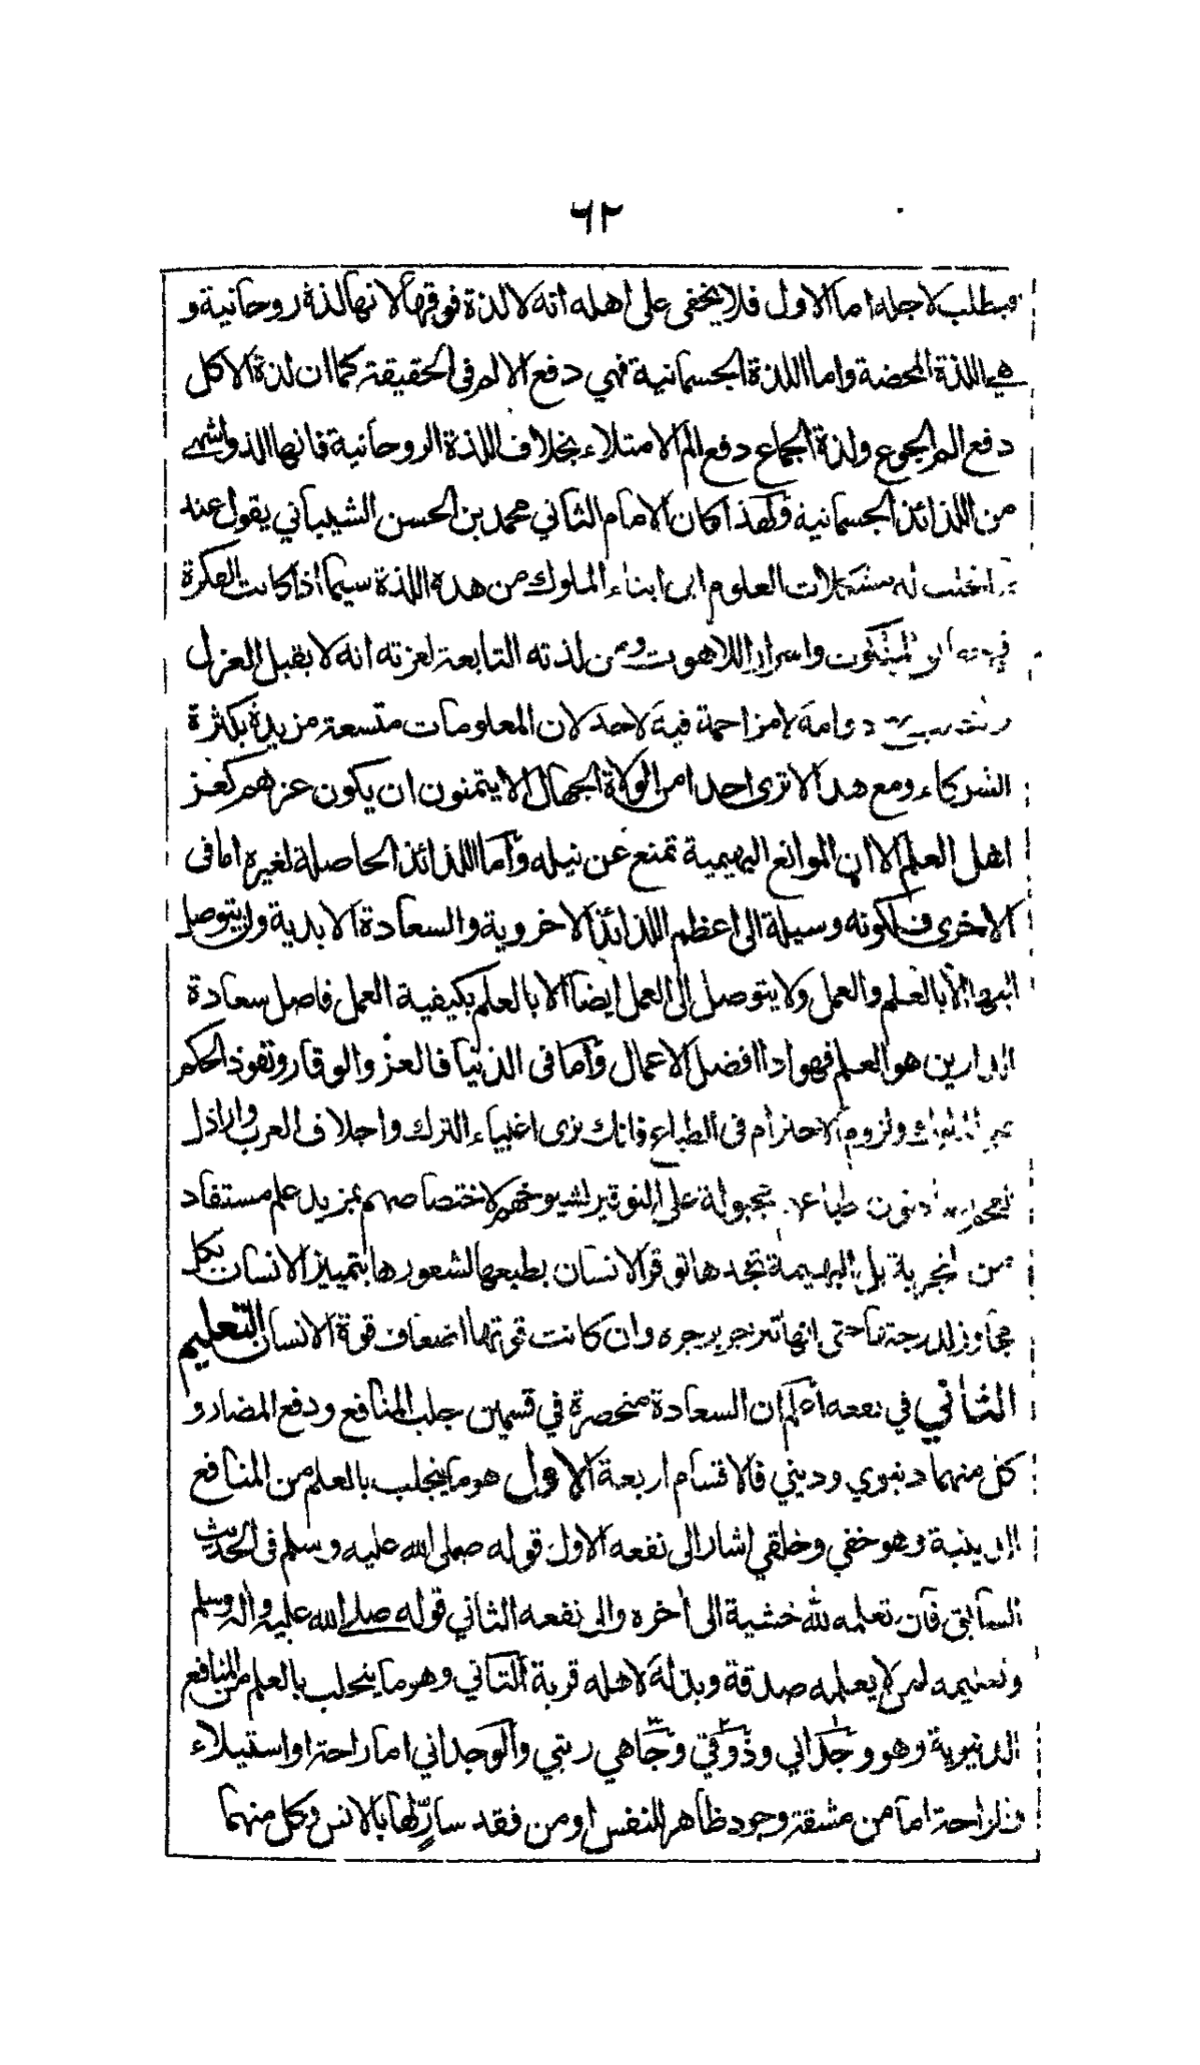 ٦٢
فيطلب لاجله اما الاول فلا يخفى على اهله انه لا لذة فوقها لانها لذة روحانية و
هي اللذة المحضة واما اللذة الجسمانية فهي دفع الالم في الحقيقة كما ان لذة الاكل
دفع الم الجوع ولذة الجماع دفع الم الامتلاء بخلاف اللذة الروحانية فانها الذ واشهى
من اللذائذ الجسمانية ولهذا كان الامام الثاني محمد بن الحسن الشيباني يقول عند
ما انحلت له مشكلات العلوم اين ابناء الملوك من هذه اللذة سيما اذا كانت الفكرة
في الملكوت واسرار اللاهوت ومن لذته التابعة لعزته انه لا يقبل العزل
دوامه لا مزاحمة فيه لاحد لان المعلومات متسعة مزيدة بكثرة
الشركاء ومع هذا لا ترى احدا من الولاة الجهال الا يتمنون ان يكون عزهم كعز
اهل العلم الا ان الموانع البهيمية تمنع عن نيله واما اللذائذ الحاصلة لغيره اما في
الاخرى فلكونه وسيلة الى اعظم اللذائذ الاخروية والسعادة الابدية ولن يتوصل
اليها الا بالعلم والعمل ولا يتوصل الى العمل ايضا الا بالعلم بكيفية العمل فاصل سعادة
الدارين هو العلم فهو اذا افضل الاعمال واما في الدنيا فالعز والوقار ونفوذ الحكم
على الملوك ولزوم الاحترام في الطباع فانك ترى اغبياء الترك واجلاف العرب واراذل
العجم يصادفون طباعهم مجبولة على التوقير لشيوخهم لاختصاصهم بمزيد علم مستفاد
من التجربة بل البهيمة تجدها توقر الانسان بطبعها لشعورها بتمييز الانسان بكمال
مجاوز لدرجتها حتى انها تنزجر بزجره وان كانت قوتها اضعاف قوة الانسان التعليم
الثاني في نفعه اعلم ان السعادة منحصرة في قسمين جلب المنافع ودفع المضار و
كل منهما دنيوي وديني فالاقسام اربعة الاول هو ما ينجلب بالعلم من المنافع
الدينية وهو خفي وخلقي اشار الى نفعه الاول قوله صلى الله عليه وسلم في الحديث
السابق فان تعلمه لله خشية الى آخره والى نفعه الثاني قوله صلى الله عليه وآله وسلم
وتعليمه لمن لا يعلمه صدقة وبذله لاهله قربة الثاني وهو ما ينجلب بالعلم من المنافع
الدنيوية وهو وجداني وذوقي وجاهي رتبي والوجداني اما راحة او استيلاء
فالراحة اما من مشقة وجود ظاهر للنفس او من فقد سار لها بالانس وكل منهما